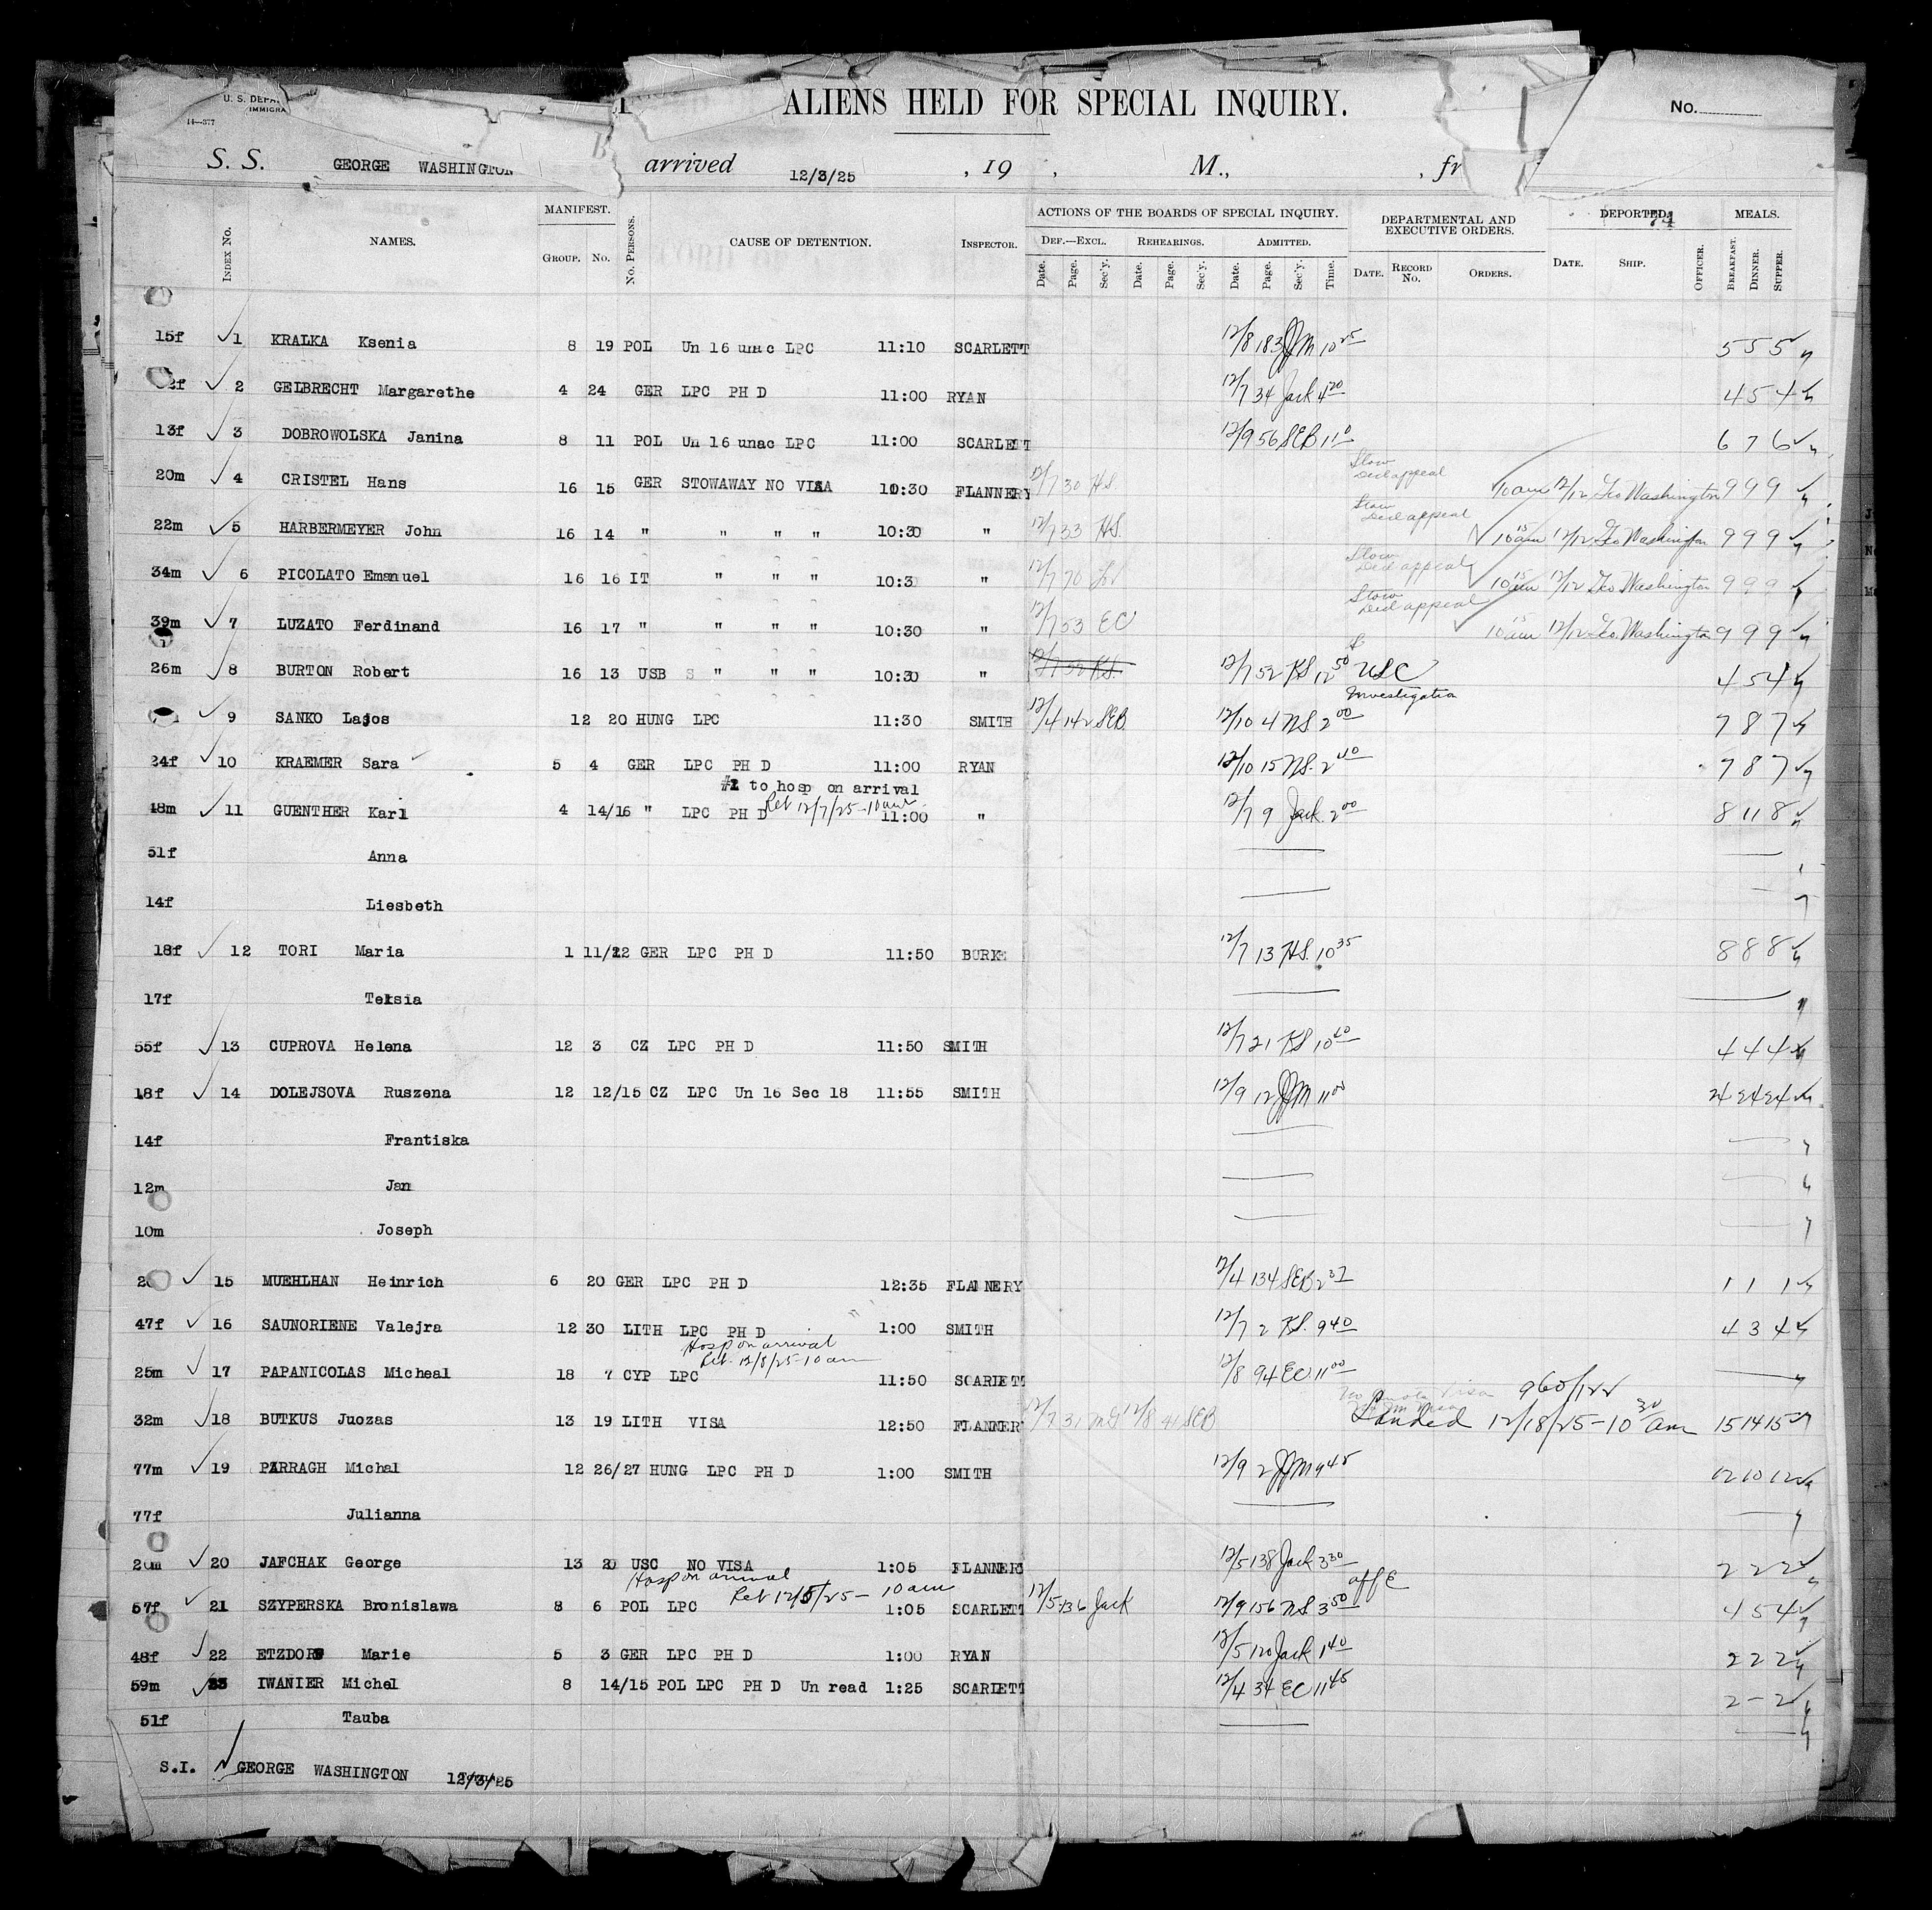 U. S. DEPA
IMMIGRA
14—377
ALIENS HELD FOR SPECIAL INQUIRY.
No.
S. S. GEORGE WASHINGTON arrived 12/3/25 , 19 , M., , fr
MANIFEST. ACTIONS OF THE BOARDS OF SPECIAL INQUIRY. DEPARTMENTAL AND EXECUTIVE ORDERS. DEPORTED. 74 MEALS.
INDEX NO. NAMES. GROUP. NO. NO. PERSONS. CAUSE OF DETENTION. INSPECTOR. DEF.—EXCL. REHEARINGS. ADMITTED.
Date. Page. Sec'y. Date. Page. Sec'y. Date. Page. Sec'y. Time. DATE. RECORD NO. ORDERS. DATE. SHIP. OFFICER. BREAKFAST. DINNER. SUPPER.
15f 1 KRALKA Ksenia 8 19 POL Un 16 unac LPC 11:10 SCARLETT 12/8 183 JJM 10 25 5 5 5
2f 2 GELBRECHT Margarethe 4 24 GER LPC PH D 11:00 RYAN 12/7 34 Jack 4 20 4 5 4
13f 3 DOBROWOLSKA Janina 8 11 POL Un 16 unac LPC 11:00 SCARLETT 12/9 56 SEB 11 6 7 6
20m 4 CRISTEL Hans 16 15 GER STOWAWAY NO VISA 10:30 FLANNERY 12/7 30 HS. Stow Decl appeal 10 am 12/12 Geo Washington 9 9 9
22m 5 HARBERMEYER John 16 14 " " " " 10:30 " 12/7 33 HS. Stow Decl appeal 10 15 am 12/12 Geo Washington 9 9 9
34m 6 PICOLATO Emanuel 16 16 IT " " " 10:3 " 12/7 70 Stow Decl appeal 10 15 am 12/12 Geo Washington 9 9 9
39m 7 LUZATO Ferdinand 16 17 " " " " 10:30 " 12/7 53 EC Stow Decl appeal 10 15 am 12/12 Geo. Washington 9 9 9
26m 8 BURTON Robert 16 13 USB S " " " 10:30 " 12/7 52 KS. 12/7 52 KS 12 50 USC 4 5 4
Investigation
9 SANKO Lajos 12 20 HUNG LPC 11:30 SMITH 12/4 142 SEB. 12/10 4 NS 2 00 7 8 7
24f 10 KRAEMER Sara 5 4 GER LPC PH D 11:00 RYAN 12/10 15 NS. 2 40 7 8 7
#2 to hosp on arrival
Ret 12/7/25 - 10 am
48m 11 GUENTHER Karl 4 14/16 " LPC PH D 11:00 " 12/7 9 Jack 2 00 8 11 8
51f Anna
14f Liesbeth
18f 12 TORI Maria 1 11/12 GER LPC PH D 11:50 BURKE 12/7 13 HS. 10 35 8 8 8
17f Teksia
55f 13 CUPROVA Helena 12 3 CZ LPC PH D 11:50 SMITH 12/7 21 KS 10 4 4 4
18f 14 DOLEJSOVA Ruszena 12 12/15 CZ LPC Un 16 Sec 18 11:55 SMITH 12/9 12 JJM 11 00 24 24 24
14f Frantiska
12m Jan
10m Joseph
2 15 MUEHLHAN Heinrich 6 20 GER LPC PH D 12:35 FLANNERY 12/4 134 SEB 2 37 1 1 1
47f 16 SAUNORIENE Valejra 12 30 LITH LPC PH D 1:00 SMITH 12/7 2 KS. 9 40 4 3 4
Hosp on arrival
Ret. 12/8/25 - 10 am
25m 17 PAPANICOLAS Micheal 18 7 CYP LPC 11:50 SCARLETT 12/8 94 EC 11 00
960/122
32m 18 BUTKUS Juozas 13 19 LITH VISA 12:50 FLANNER 12/7 31 12/8 41 SEB Landed 12/18/25 - 10 30 am 15 14 15
77m 19 PARRAGH Michal 12 26/27 HUNG LPC PH D 1:00 SMITH 12/9 2 JJM 9 45 12 10 12
77f Julianna
20m 20 JAFCHAK George 13 20 USC NO VISA 1:05 FLANNERY 12/5 138 Jack 3 30 2 2 2
Hosp on arrival Ret 12/5/25 - 10 am
57f 21 SZYPERSKA Bronislawa 8 6 POL LPC 1:05 SCARLETT 12/5 136 Jack 12/9 156 NS 3 50 4 5 4
48f 22 ETZDORF Marie 5 3 GER LPC PH D 1:00 RYAN 12/5 120 Jack 1 40 2 2 2
59m 23 IWANIER Michel 8 14/15 POL LPC PH D Un read 1:25 SCARLETT 12/4 34 EC 11 45 2 - 2
51f Tauba
S.I. GEORGE WASHINGTON 12/3/25